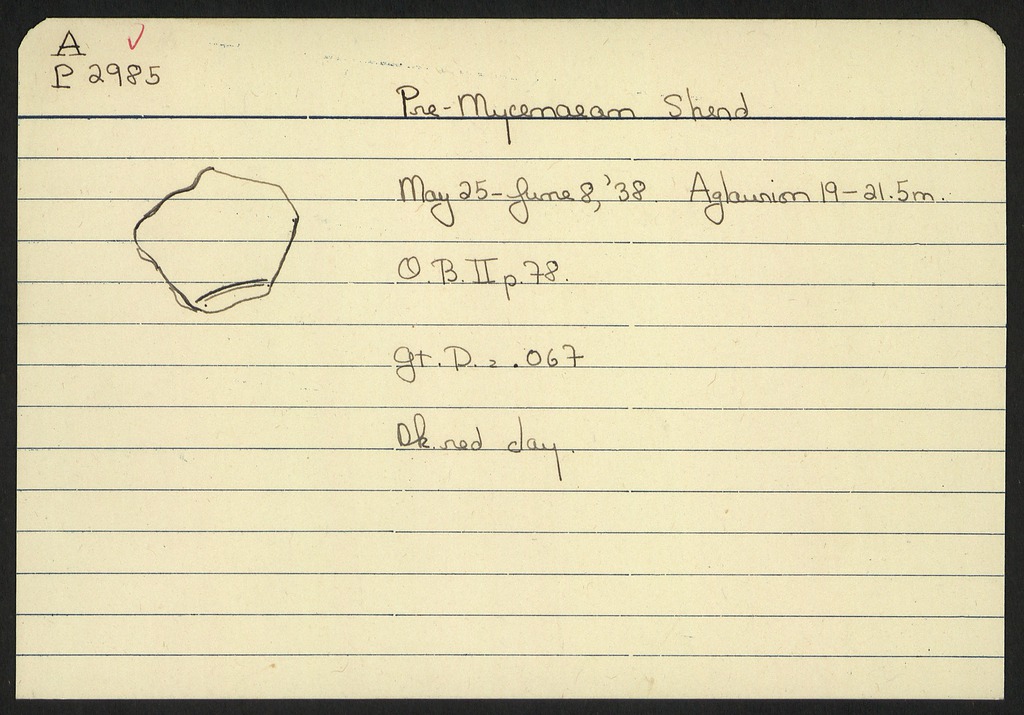 A ✓
P 2985
Pre-Mycenaean Sherd
May 25-June 8, '38. Aglaurion 19-21.5m.
O.B. II p.78.
gt. D. = .067
Dk. red clay.